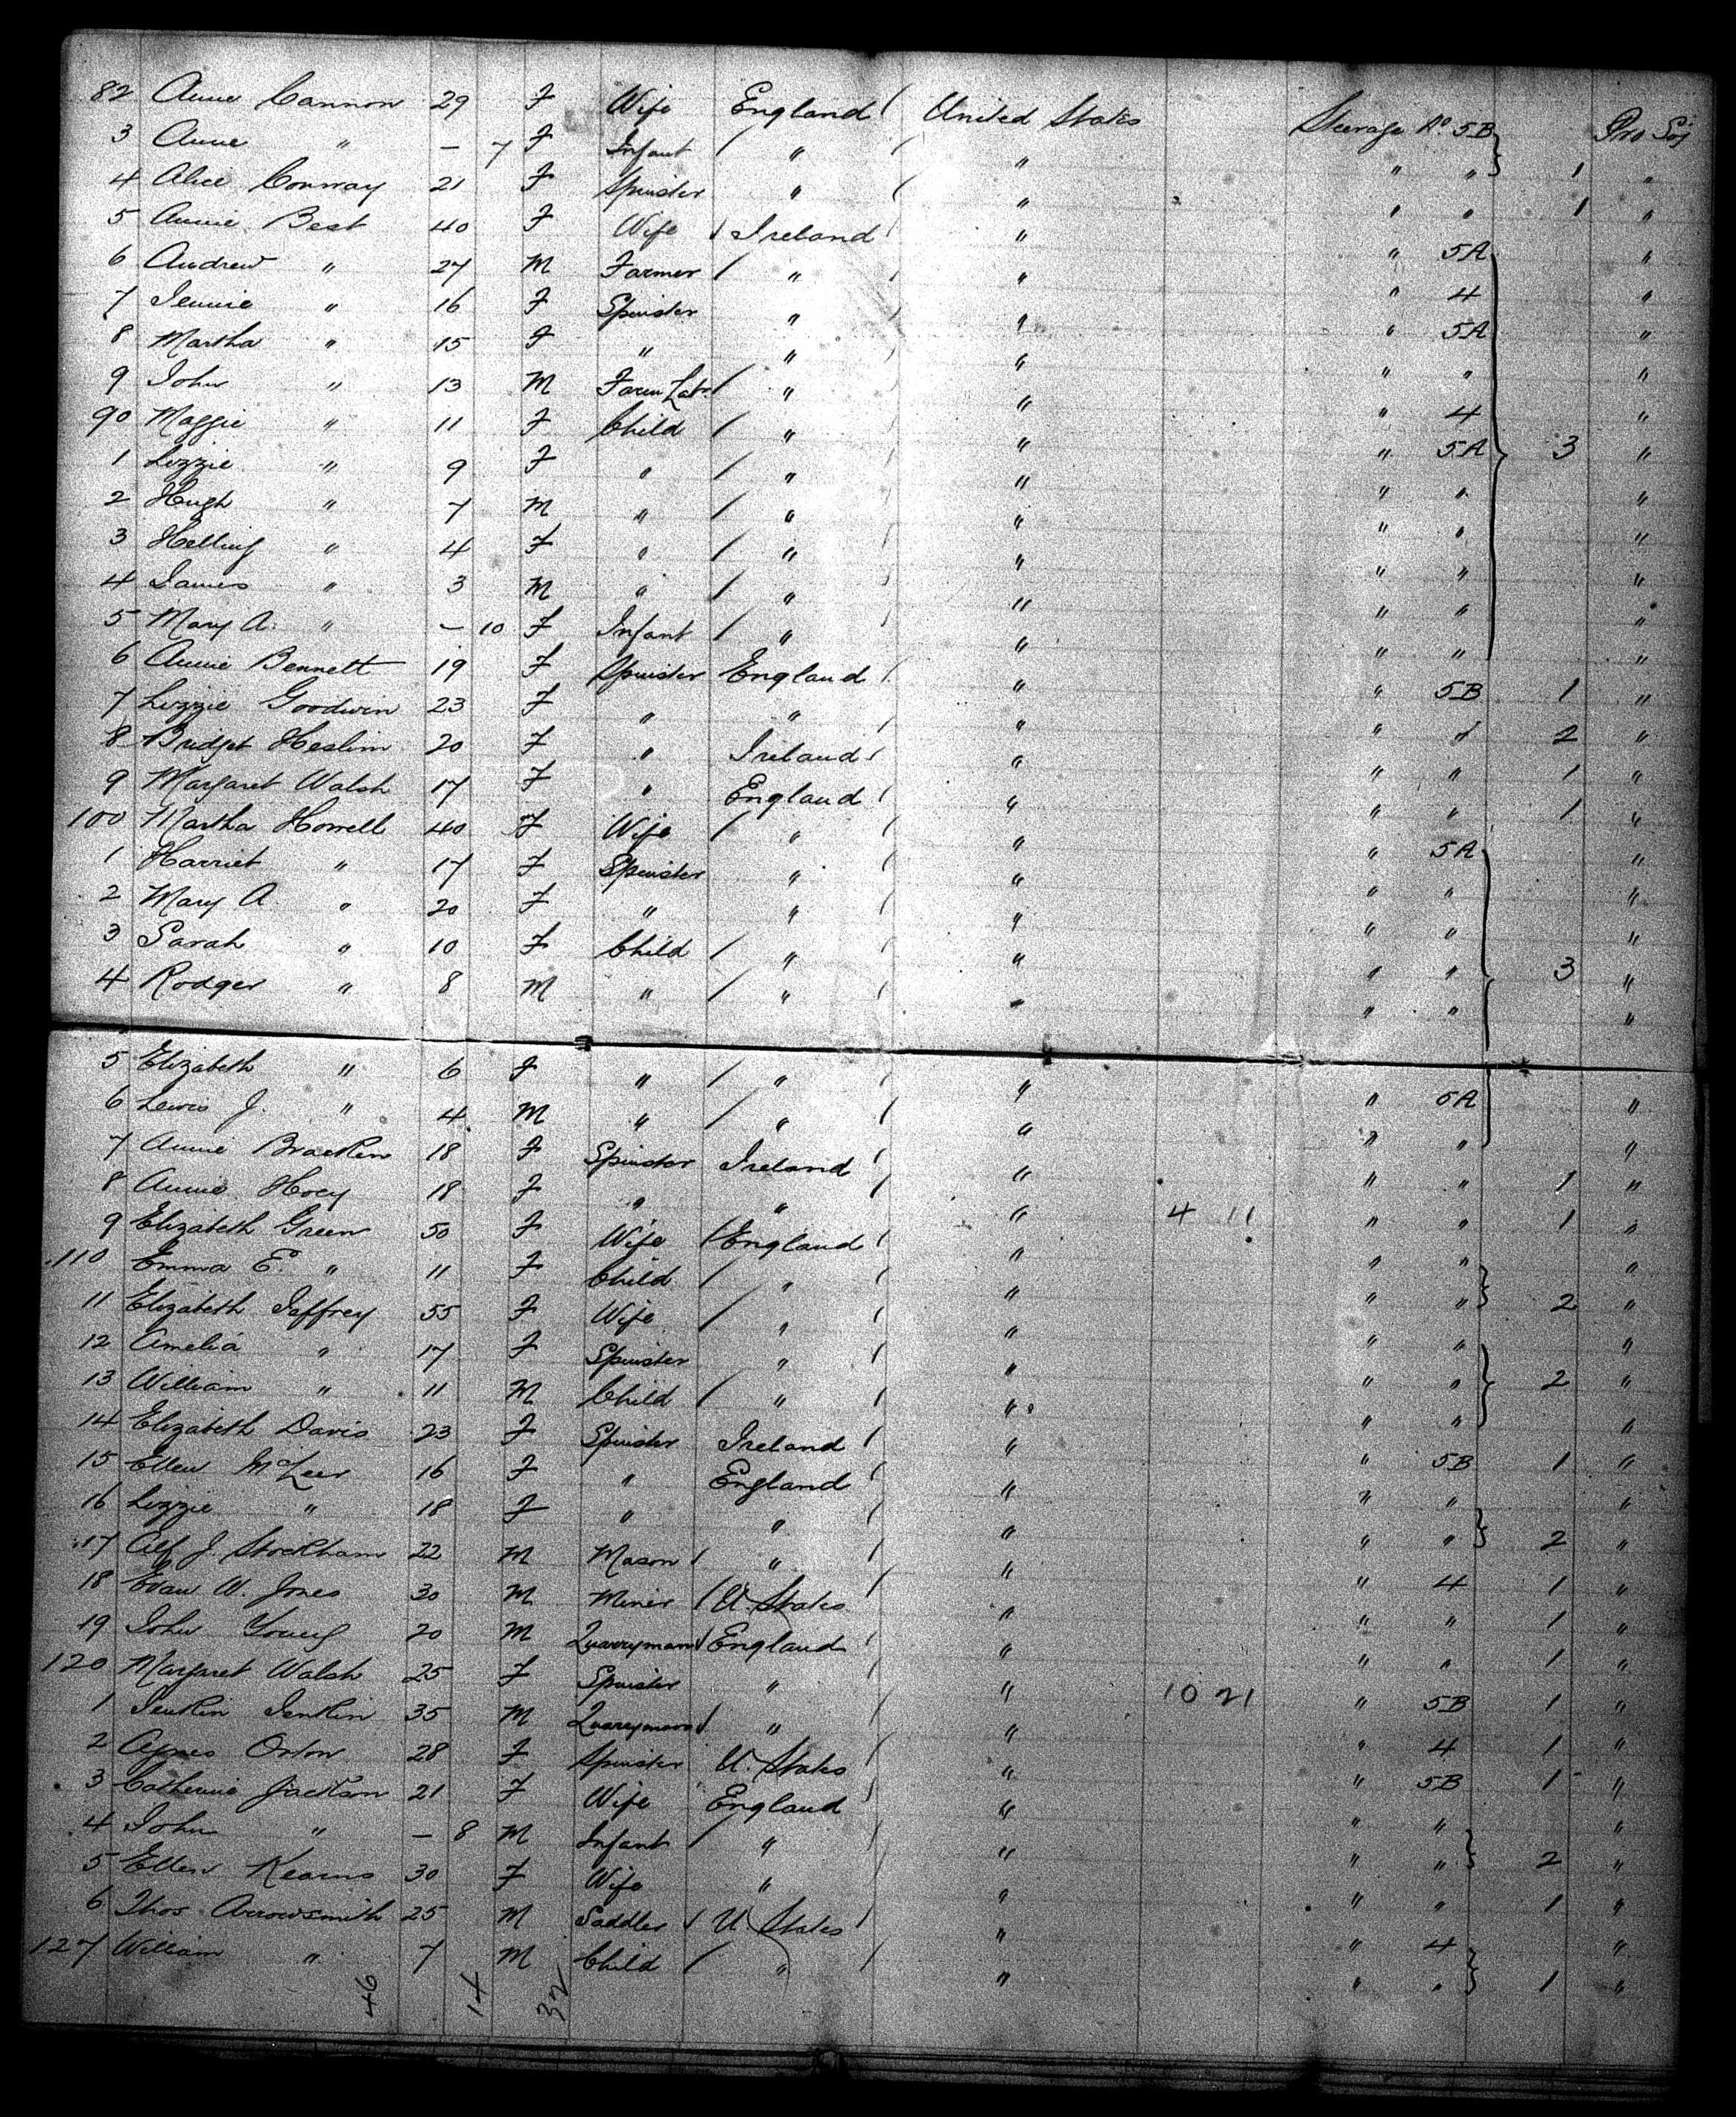 82 Annie Cannon 29 F Wife England United States Steerage No 5B Pro Soj
3 Annie " – 7 F Infant " " " " 1 "
4 Alice Conway 21 F Spinster " " " " 1 "
5 Annie Best 40 F Wife Ireland " " 5A "
6 Andrew " 27 M Farmer " " " 4 "
7 Jennie " 16 F Spinster " " " 5A "
8 Martha " 15 F " " " " " "
9 John " 13 M Farm Labr " " " 4 "
90 Maggie " 11 F Child " " " 5A 3 "
1 Lizzie " 9 F " " " " " "
2 Hugh " 7 M " " " " " "
3 " 4 F " " " " " "
4 James " 3 M " " " " " "
5 Mary A. " – 10 F Infant " " " " "
6 Annie Bennett 19 F Spinster England " " 5B 1 "
7 Lizzie Goodwin 23 F " " " " " 2 "
8 Bridget Heslin 20 F " Ireland " " " 1 "
9 Margaret Walsh 17 F " England " " " 1 "
100 Martha Horrell 40 F Wife " " " 5A "
1 Harriet " 17 F Spinster " " " " "
2 Mary A " 20 F " " " " " "
3 Sarah " 10 F Child " " " " 3 "
4 Rodger " 8 M " " " " " "
5 Elizabeth " 6 F " " " " 5A "
6 Lewis J. " 4 M " " " " " "
7 Annie Bracken 18 F Spinster Ireland " " " 1 "
8 Annie Hoey 18 F " " " 4 11 " " 1 "
9 Elizabeth Green 50 F Wife England " " " "
110 Emma E. " 11 F Child " " " " 2 "
11 Elizabeth Jaffrey 55 F Wife " " " " "
12 Amelia " 17 F Spinster " " " " 2 "
13 William " 11 M Child " " " " "
14 Elizabeth Davis 23 F Spinster Ireland " " 5B 1 "
15 Ellen McLeer 16 F " England " " " "
16 Lizzie " 18 F " " " " " 2 "
17 Alf J. Stockham 22 M Mason " " " 4 1 "
18 Evan W. Jones 30 M Miner U. States " " " 1 "
19 John Young 20 M Quarryman England " " " 1 "
120 Margaret Walsh 25 F Spinster " " 10 21 " 5B 1 "
1 Jenkin Jenkin 35 M Quarryman " " " 4 1 "
2 Agnes Orton 28 F Spinster U. States " " 5B 1 "
3 Catherine Jackson 21 F Wife England " " " "
4 John " – 8 M Infant " " " " 2 "
5 Ellen Kearns 30 F Wife " " " " 1 "
6 Thos Arrowsmith 25 M Saddler U. States " " 4 "
127 William " 7 M Child " " " " 1 "
46 14 32